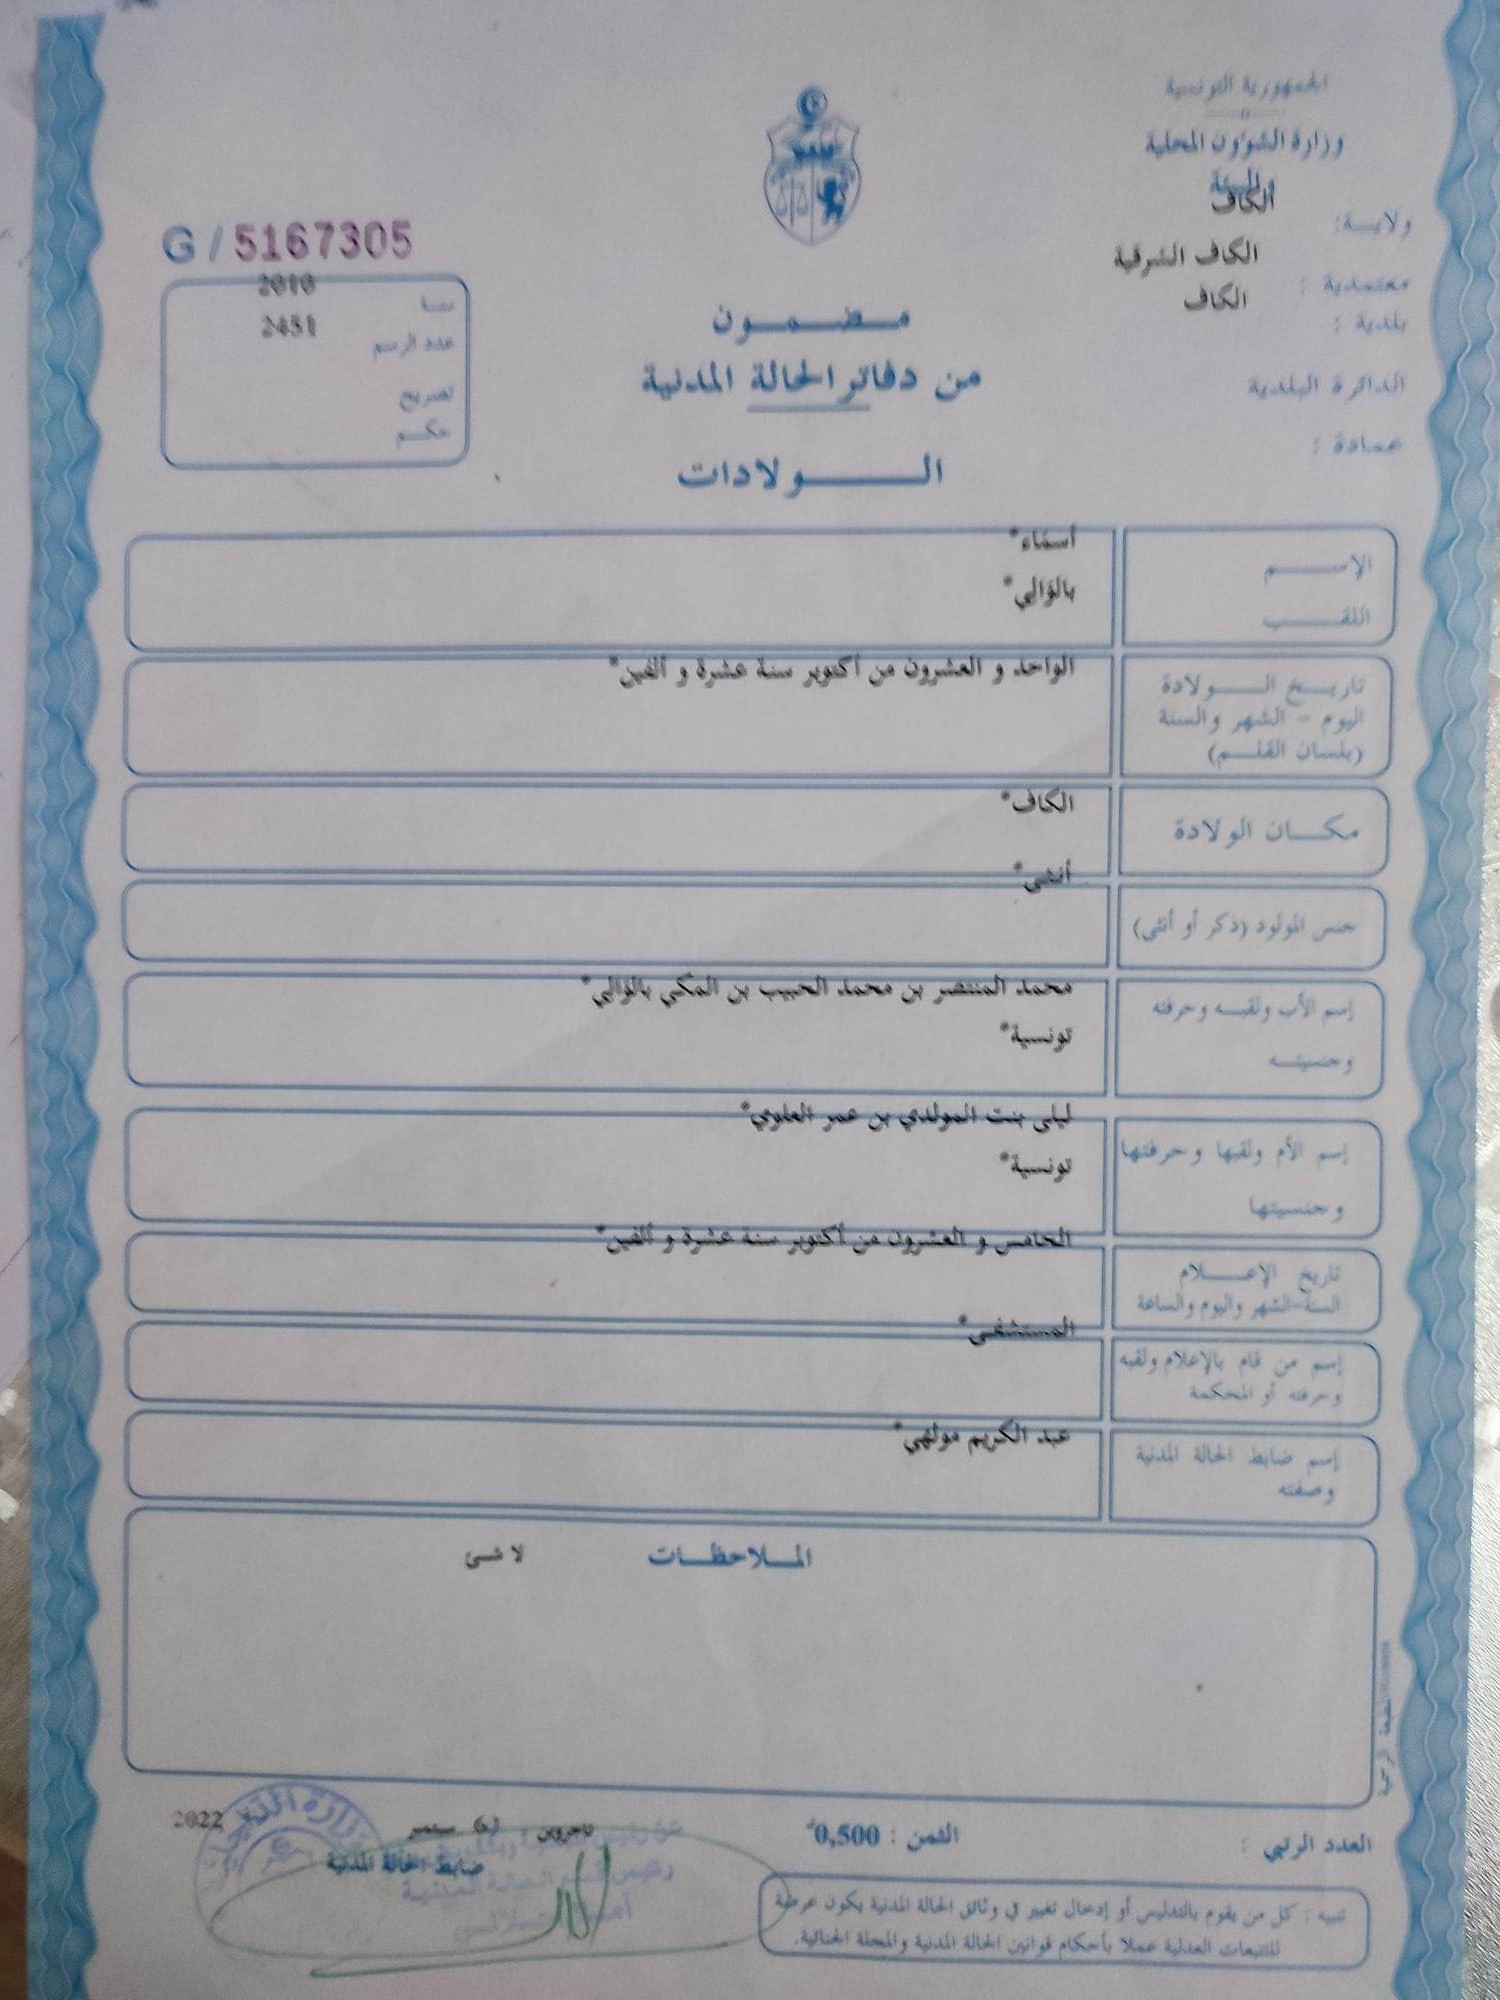 الجمهورية التونسية
وزارة الشؤون المحلية
والبيئة
ولاية: الكاف
معتمدية : الكاف الشرقية
بلدية : الكاف
الدائرة البلدية
عمادة :
G / 5167305
سنة 2010
عدد الرسم 2451
تصريح
حكم
مضمون
من دفاتر الحالة المدنية
الولادات
الإسم أسماء*
اللقب بالوالي*
تاريخ الولادة
اليوم - الشهر والسنة
(بلسان القلم)
الواحد و العشرون من أكتوبر سنة عشرة و ألفين*
مكان الولادة الكاف*
جنس المولود (ذكر أو أنثى) أنثى*
إسم الأب ولقبه وحرفته
وجنسيته
محمد المنتصر بن محمد الحبيب بن المكي بالوالي*
تونسية*
إسم الأم ولقبها وحرفتها
وجنسيتها
ليلى بنت المولدي بن عمر العلوي*
تونسية*
تاريخ الإعلام
السنة-الشهر واليوم والساعة
الخامس و العشرون من أكتوبر سنة عشرة و ألفين*
إسم من قام بالإعلام ولقبه
وحرفته أو المحكمة
المستشفى*
إسم ضابط الحالة المدنية
وصفته
عبد الكريم مولهي*
الملاحظات لا شئ
العدد الرتبي :
الثمن : 0,500د
تاجروين سبتمبر 2022
ضابط الحالة المدنية
تنبيه : كل من يقوم بالتدليس أو إدخال تغيير في وثائق الحالة المدنية يكون عرضة
للتتبعات العدلية عملا بأحكام قوانين الحالة المدنية والمجلة الجنائية.